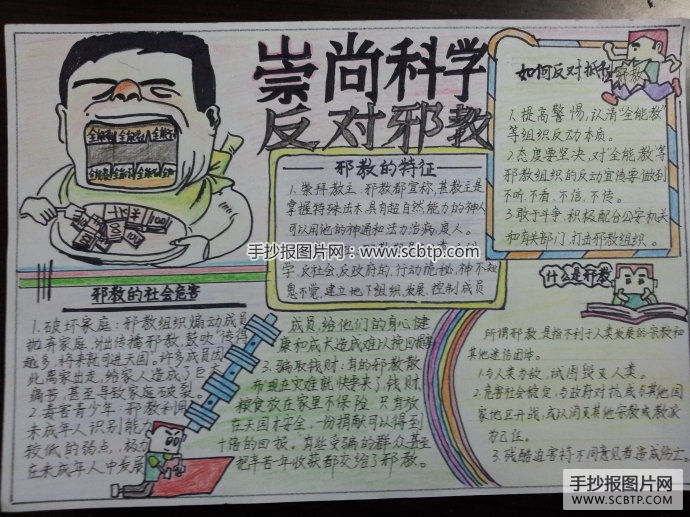 崇尚科学
反对邪教
全能教 全能教 全能教
全能教 全能教
邪教的特征
1.崇拜教主:邪教都宣称,其教主是
掌握特殊法术,具有超自然能力的神人
可以用他的神通和法力治病,度人。
学,反社会,反政府的,行动诡秘,神不知
鬼不觉,建立地下组织,发展、控制成员
如何反对抵制邪教
1.提高警惕,认清“全能教”
等组织反动本质。
2.态度要坚决,对“全能教”等
邪教组织的反动宣传要做到
不听、不看、不信、不传。
3.敢于斗争,积极配合公安机关
和有关部门,打击邪教组织。
手抄报图片网:www.scbtp.com
邪教的社会危害
1.破坏家庭:邪教组织煽动成员
抛弃家庭,外出传播邪教,鼓吹“传得
越多,将来就可进天国。许多成员因
此离家出走,给家人造成了巨大
痛苦,甚至导致家庭破裂。
2.毒害青少年:邪教利用
未成年人识别能力
较低的弱点,极力
在未成年人中发展
成员,给他们的身心健
康和成长造成难以挽回的影响
3.骗取钱财:有的邪教散
布现在灾难就快要来了,钱财、
粮食放在家里不保险,只有放
在天国才安全,一份捐献可以得到
十倍的回报,有些受骗的群众甚至
把辛苦一年收获都交给了邪教。
什么是邪教
所谓邪教,是指不利于人类发展的宗教和
其他迷信团体。
1.与人类为敌,试图毁灭人类。
2.危害社会稳定,与政府对抗,或与其他国
家地区开战,或认同灭其他宗教或教派
为己任。
3.残酷迫害持不同意见者造成伤亡。
手抄报图片网
WWW.SCBTP.COM